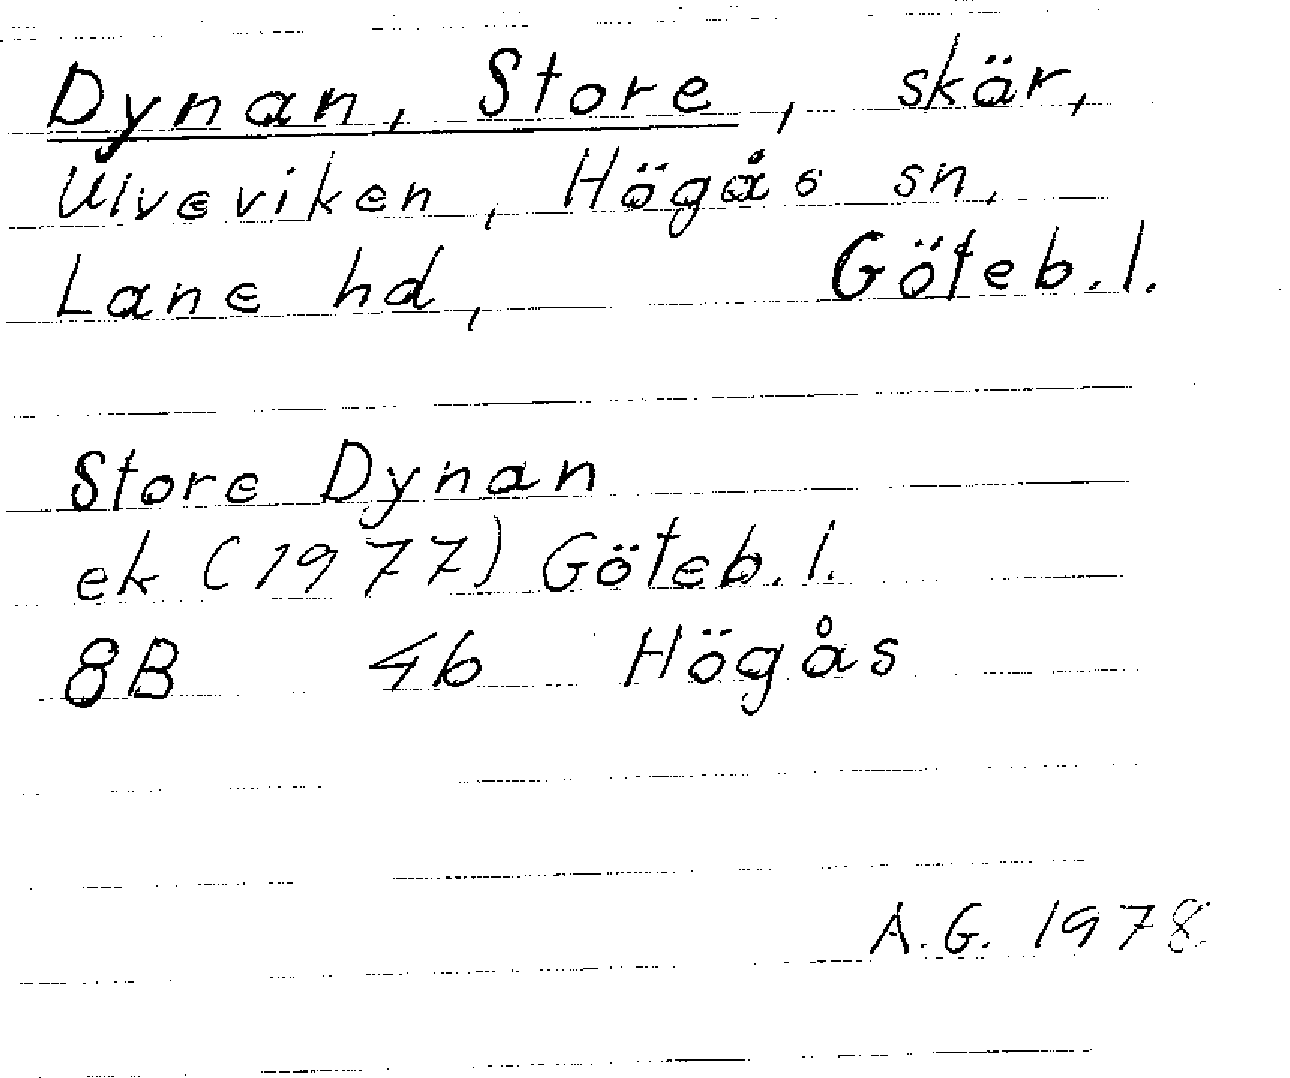 Dynan, Store, skär,
Ulveviken, Högås sn,
Lane hd, Göteb.l.
Store Dynan
ek (1977) Göteb.l.
8B 4b Högås
A.G. 1978